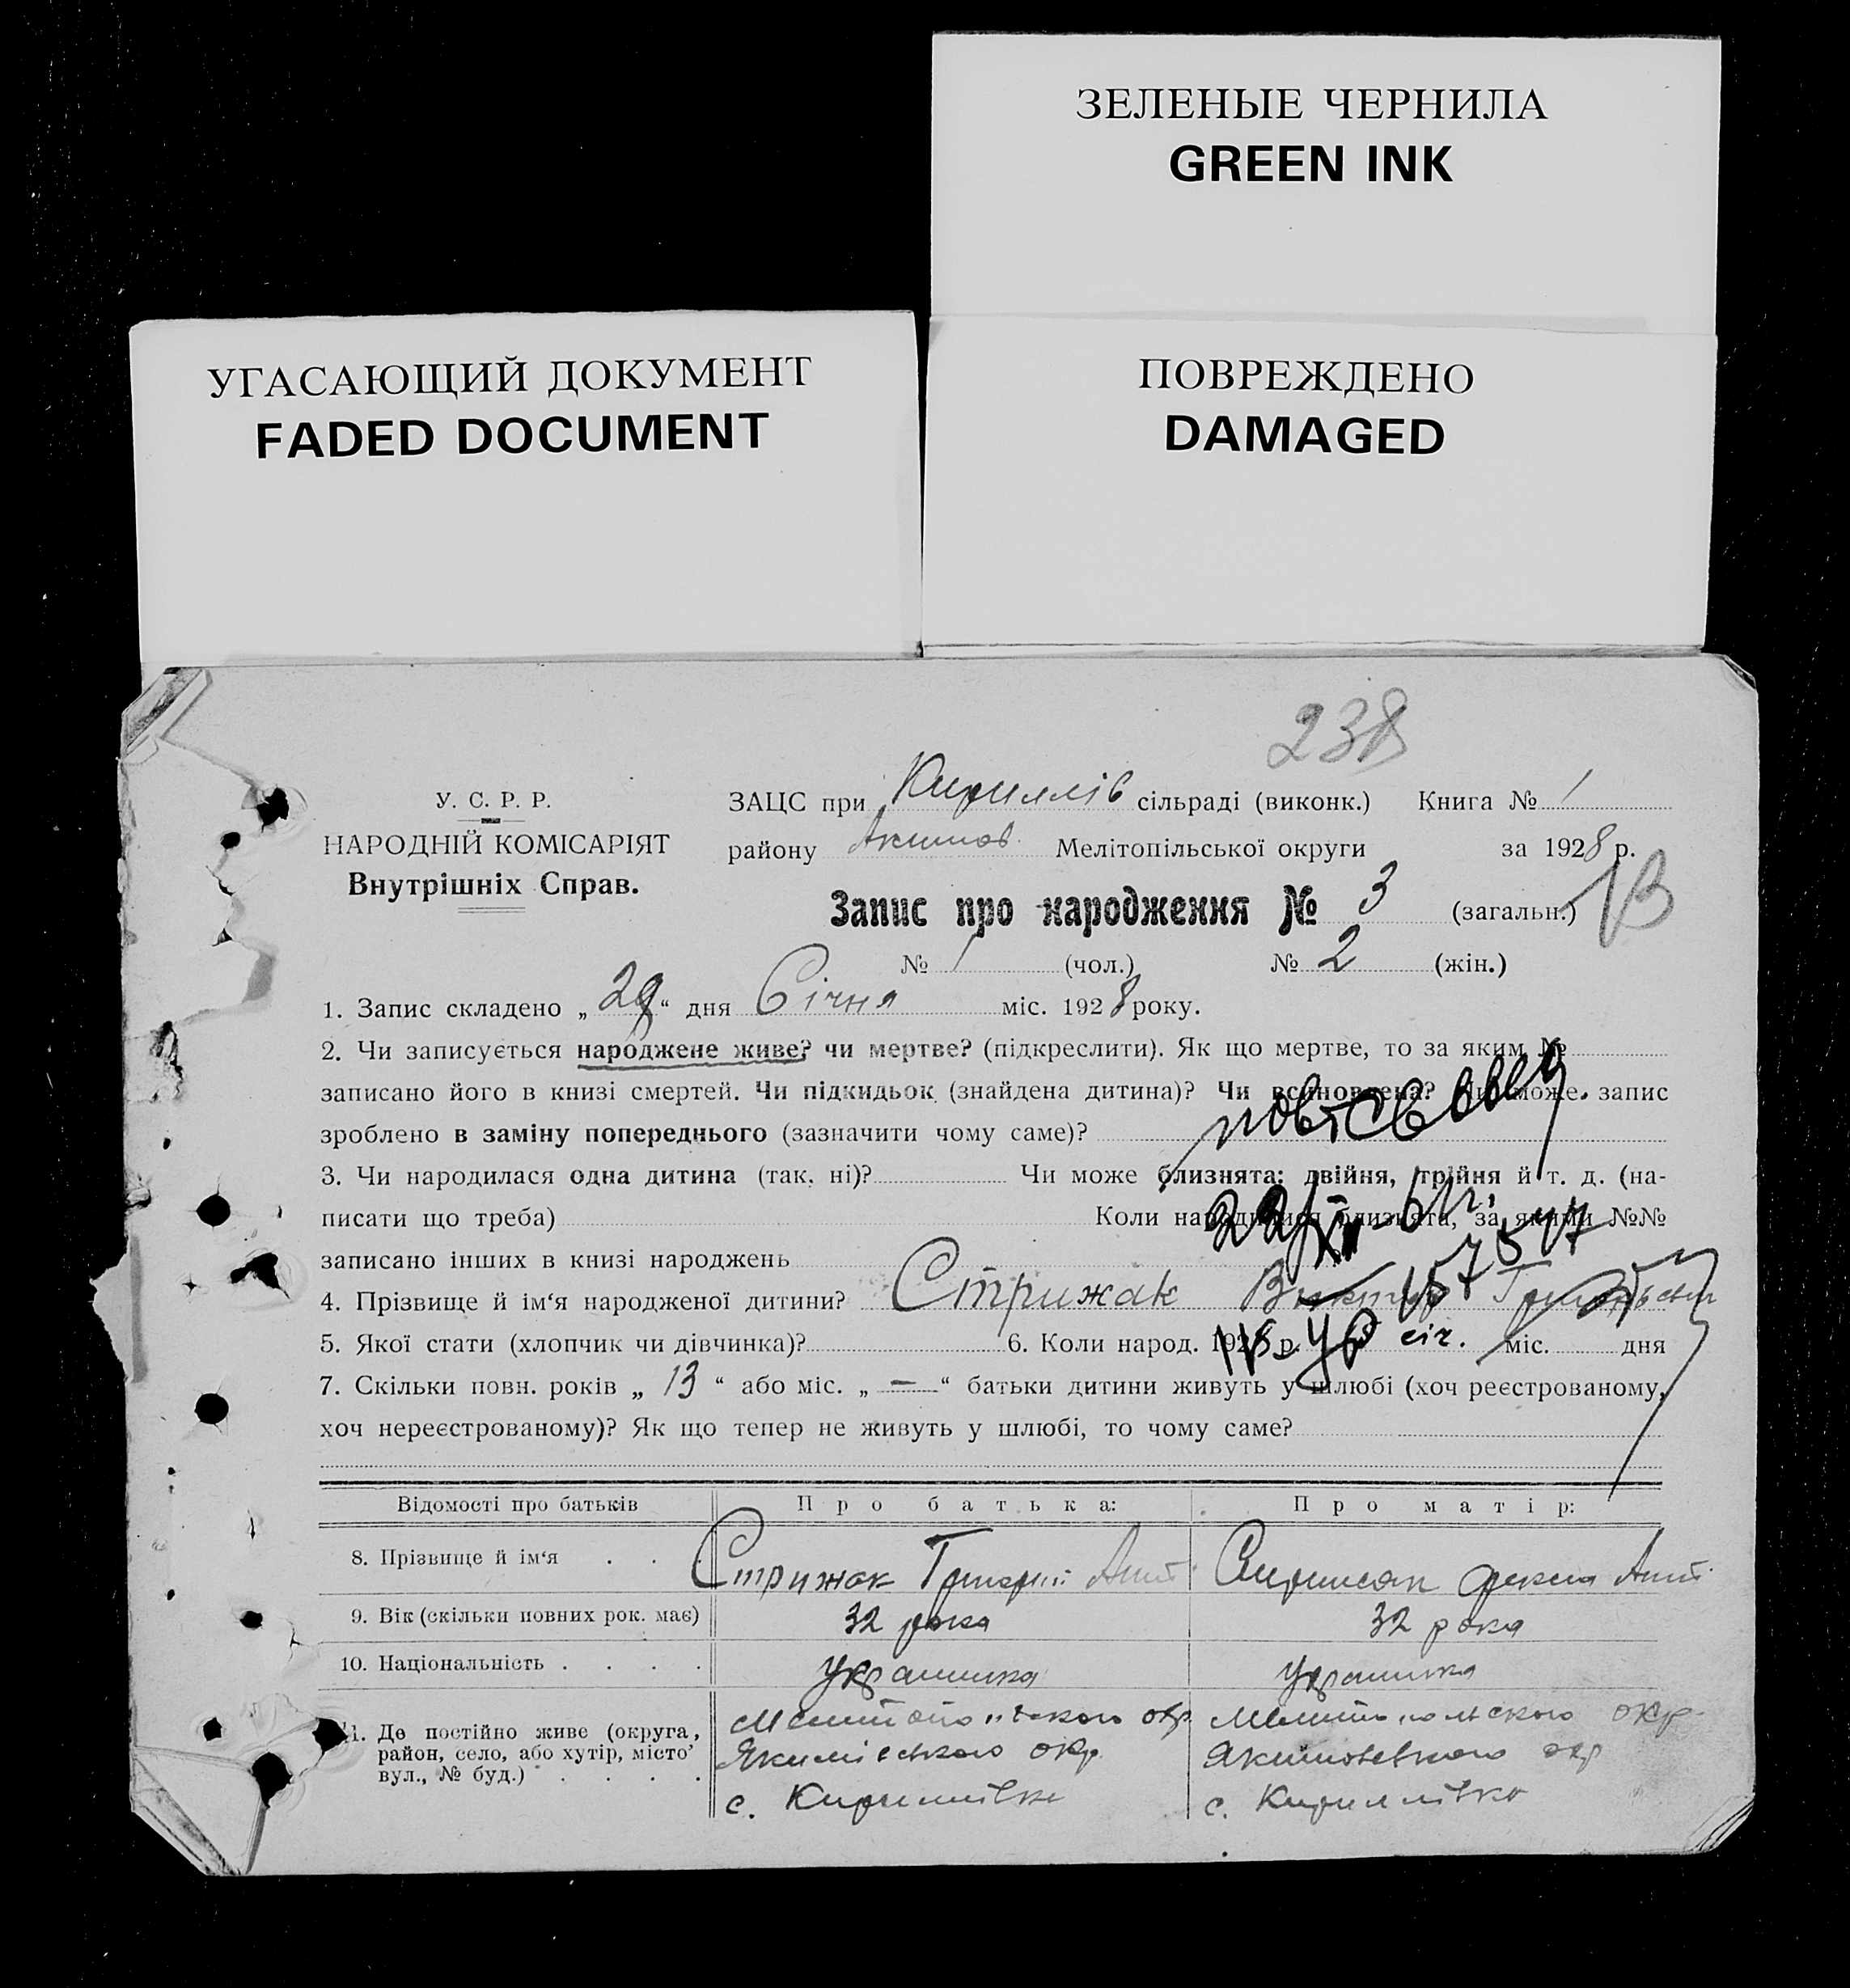 ЗЕЛЕНЫЕ ЧЕРНИЛА
GREEN INK
УГАСАЮЩИЙ ДОКУМЕНТ
FADED DOCUMENT
ПОВРЕЖДЕНО
DAMAGED
238
У. С. Р. Р.
НАРОДНІЙ КОМІСАРІЯТ
Внутрішніх Справ.
ЗАЦС при Кириллів сільраді (виконк.) Книга № 1
району Акимов Мелітопільської округи за 1928 р.
Запис про народження № 3 (загальн.)
№ 1 (чол.) № 2 (жін.)
1. Запис складено „29“ дня Січня міс. 1928 року.
2. Чи записується народжене живе? чи мертве? (підкреслити). Як що мертве, то за яким №
записано його в книзі смертей. Чи підкидьок (знайдена дитина)? Чи всиновлена? Чи може, запис
зроблено в заміну попереднього (зазначити чому саме)?
3. Чи народилася одна дитина (так, ні)? Чи може близнята: двійня, трійня й т. д. (на-
писати що треба) Коли народилися близнята, за якими №№
записано інших в книзі народжень
4. Прізвище й ім‘я народженої дитини? Стрижак Виктор
5. Якої стати (хлопчик чи дівчинка)? 6. Коли народ. 1928 р. січ. міс. дня
7. Скільки повн. років „ 13 “ або міс. „ — “ батьки дитини живуть у шлюбі (хоч реєстрованому,
хоч нереєстрованому)? Як що тепер не живуть у шлюбі, то чому саме?
Відомості про батьків Про батька: Про матір:
8. Прізвище й ім‘я . . . Стрижак Григорий Ант. Ант.
9. Вік (скільки повних рок. має) 32 рока 32 рока
10. Національність . . . . украинка украинка
11. Де постійно живе (округа,
район, село, або хутір, місто
вул., № буд.) . . . .
окр. Мелитопольского окр.
Якимівського окр. Якимовського окр
с. Кириллівка с. Кириллівка